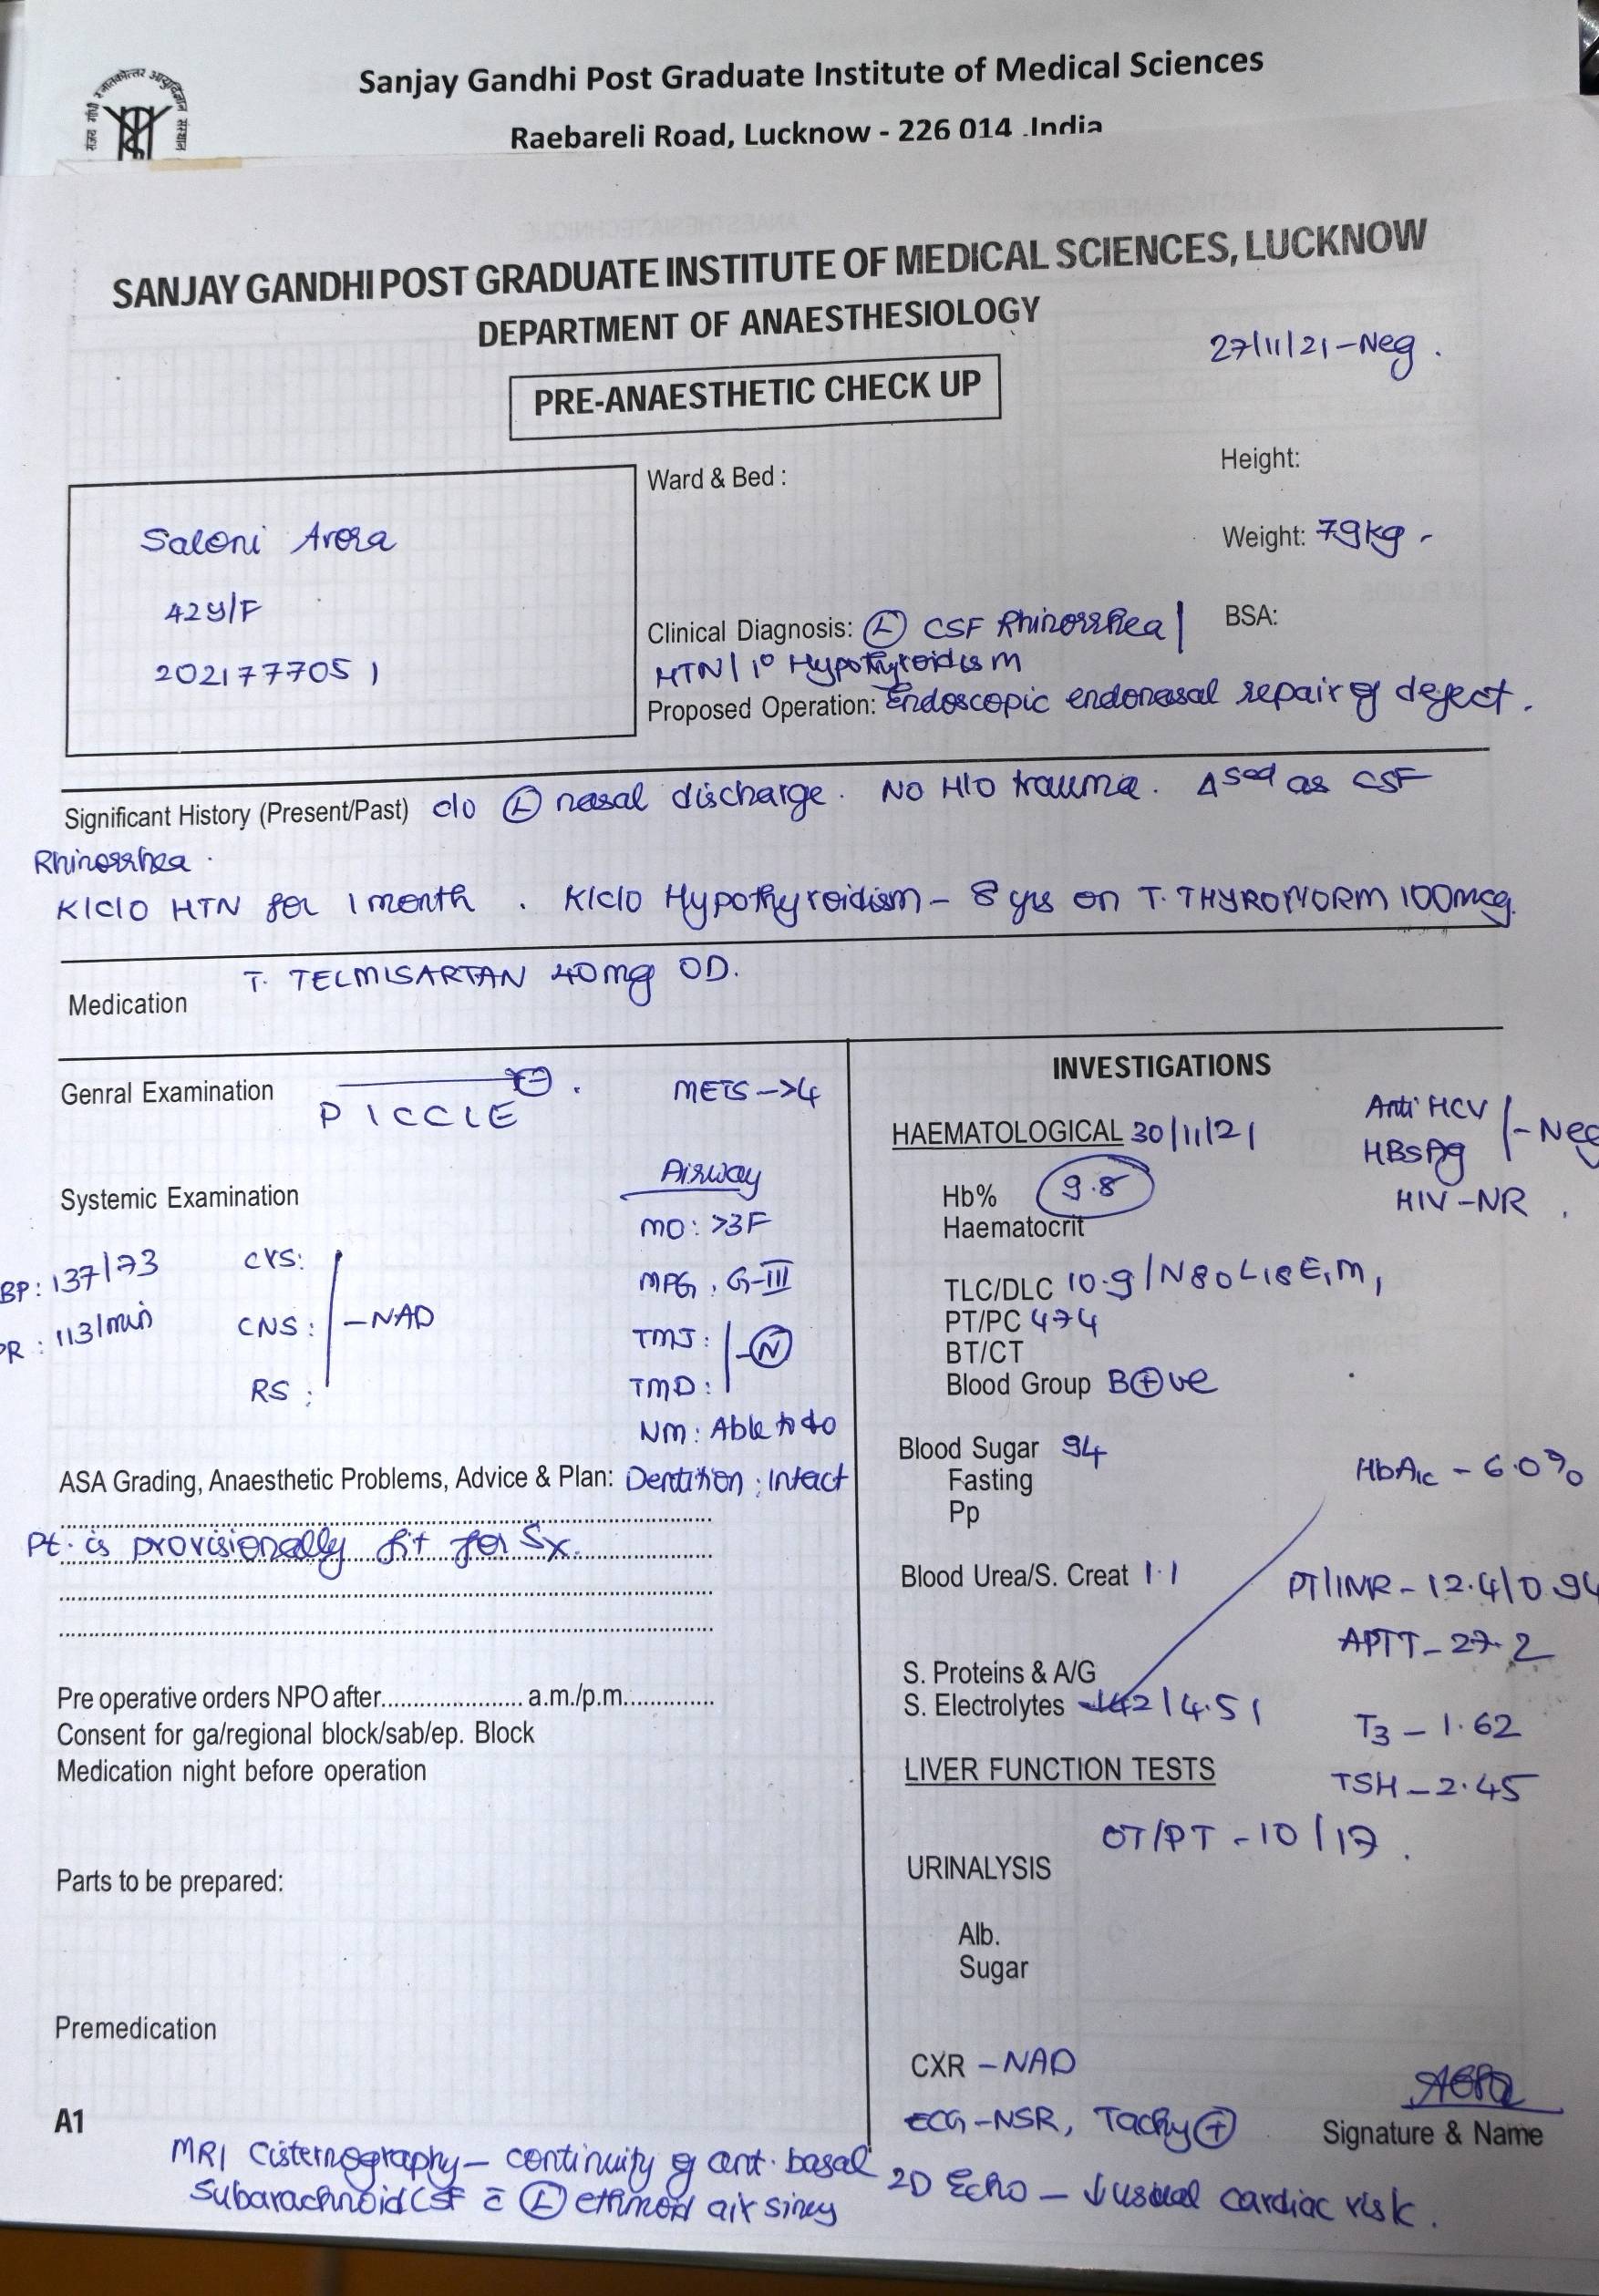 Sanjay Gandhi Post Graduate Institute of Medical Sciences
Raebareli Road, Lucknow - 226 014 .India
SANJAY GANDHI POST GRADUATE INSTITUTE OF MEDICAL SCIENCES, LUCKNOW
DEPARTMENT OF ANAESTHESIOLOGY
27/11/21-Neg.
PRE-ANAESTHETIC CHECK UP
Saloni Arora
42y/F
2021777051
Ward & Bed :
Height:
Weight: 79kg
BSA:
Clinical Diagnosis: Ⓛ CSF Rhinorrhea |
HTN | 1° Hypothyroidism
Proposed Operation: Endoscopic endonasal repair of defect.
Significant History (Present/Past) c/o Ⓛ nasal discharge. No H/O trauma. Δsed as CSF
Rhinorrhea.
K/C/O HTN for 1 month. K/C/O Hypothyroidism - 8 yrs on T. THYRONORM 100mcg.
Medication T. TELMISARTAN 40mg OD.
Genral Examination
PICCLE ⊖.
METS ->4
Systemic Examination
BP: 137/73
PR: 113/min
CVS:
CNS: -NAD
RS:
Airway
MO: >3F
MPG, G-III
TMJ: -Ⓝ
TMD:
NM: Able to do
Dentition: Intact
ASA Grading, Anaesthetic Problems, Advice & Plan:
Pt. is provisionally fit for Sx.
Pre operative orders NPO after...................... a.m./p.m..............
Consent for ga/regional block/sab/ep. Block
Medication night before operation
Parts to be prepared:
Premedication
A1
MRI Cisternography - continuity of ant. basal
Subarachnoid CSF c̄ Ⓛ ethmoid air
INVESTIGATIONS
HAEMATOLOGICAL 30/11/21
Anti HCV
HBsAg -Neg
HIV -NR
Hb% 9.8
Haematocrit
TLC/DLC 10.9/N80L18E1M1
PT/PC 474
BT/CT
Blood Group B⊕ve
Blood Sugar 94
Fasting
Pp
HbA1c - 6.0%
Blood Urea/S. Creat 1.1
PT/INR - 12.4/0.94
APTT - 27.2
S. Proteins & A/G
S. Electrolytes 142/4.51
T3 - 1.62
TSH - 2.45
LIVER FUNCTION TESTS
OT/PT - 10/17.
URINALYSIS
Alb.
Sugar
CXR - NAD
ECG - NSR, Tachy⊕
Signature & Name
2D Echo - ↓ usual cardiac risk.